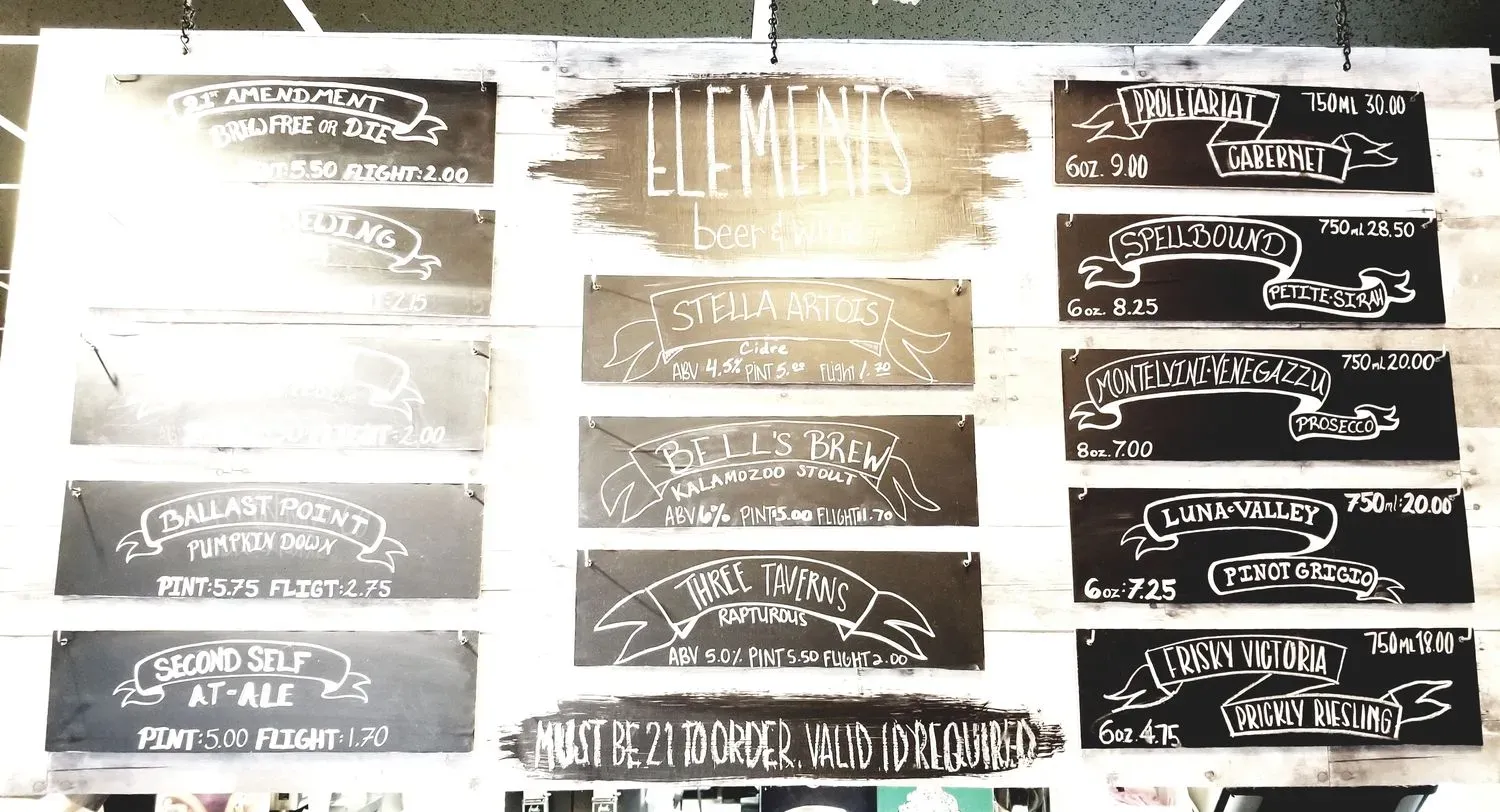 21st AMENDMENT
BREW FREE OR DIE
5.50 FLIGHT: 2.00
2.00
BALLAST POINT
PUMPKIN DOWN
PINT: 5.75 FLIGT: 2.75
SECOND SELF
AT-ALE
PINT: 5.00 FLIGHT: 1.70
ELEMENTS
beer & wine
STELLA ARTOIS
Cidre
ABV 4.5% PINT 5.00 Flight 1.70
BELL'S BREW
KALAMOZOO STOUT
ABV 6% PINT 5.00 FLIGHT 1.70
THREE TAVERNS
RAPTUROUS
ABV 5.0% PINT 5.50 FLIGHT 2.00
MUST BE 21 TO ORDER. VALID ID REQUIRED
PROLETARIAT 750ML 30.00
6oz. 9.00 CABERNET
SPELLBOUND 750mL 28.50
6oz. 8.25 PETITE·SIRAH
MONTELVINI·VENEGAZZU 750mL 20.00
8oz. 7.00 PROSECCO
LUNA·VALLEY 750ml: 20.00
6oz: 7.25 PINOT GRIGIO
FRISKY VICTORIA 750ML 18.00
6oz. 4.75 PRICKLY RIESLING